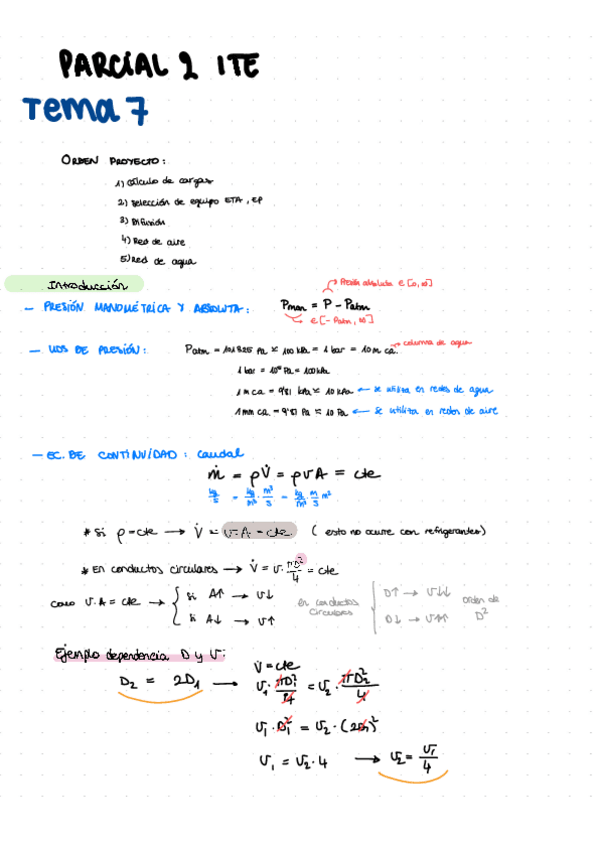 PARCIAL 2 ITE
Tema 7
ORDEN PROYECTO:
1) Cálculo de cargas
2) Selección de equipo ETA, EP
3) Difusión
4) Red de aire
5) Red de agua
Introducción
Presión absoluta ∈ [0, ∞]
— PRESIÓN MANOMÉTRICA Y ABSOLUTA: Pman = P - Patm
∈ [-Patm, ∞]
— UDS DE PRESIÓN: Patm = 101325 Pa ≈ 100 kPa = 1 bar = 10 m ca. → columna de agua
1 bar = 10⁵ Pa = 100 kPa
1 m ca = 9'81 kPa ≈ 10 kPa ← se utiliza en redes de agua
1 mm ca = 9'81 Pa ≈ 10 Pa ← Se utiliza en redes de aire
— EC. DE CONTINUIDAD: caudal
ṁ = ρV̇ = ρvA = cte
kg/s = kg/m³ · m³/s = kg/m³ · m/s m²
* Si ρ = cte → V̇ = v·A = cte. (esto no ocurre con refrigerantes)
* En conductos circulares → V̇ = v · πD²/4 = cte
como v·A = cte → { si A↑ → v↓ en conductos circulares { D↑ → v↓↓ orden de D²
si A↓ → v↑ D↓ → v↑↑
Ejemplo dependencia D y v:
V̇ = cte
D₂ = 2D₁ → v₁ · πD₁²/4 = v₂ · πD₂²/4
v₁ · D₁² = v₂ · (2D₁)²
v₁ = v₂ · 4 → v₂ = v₁/4